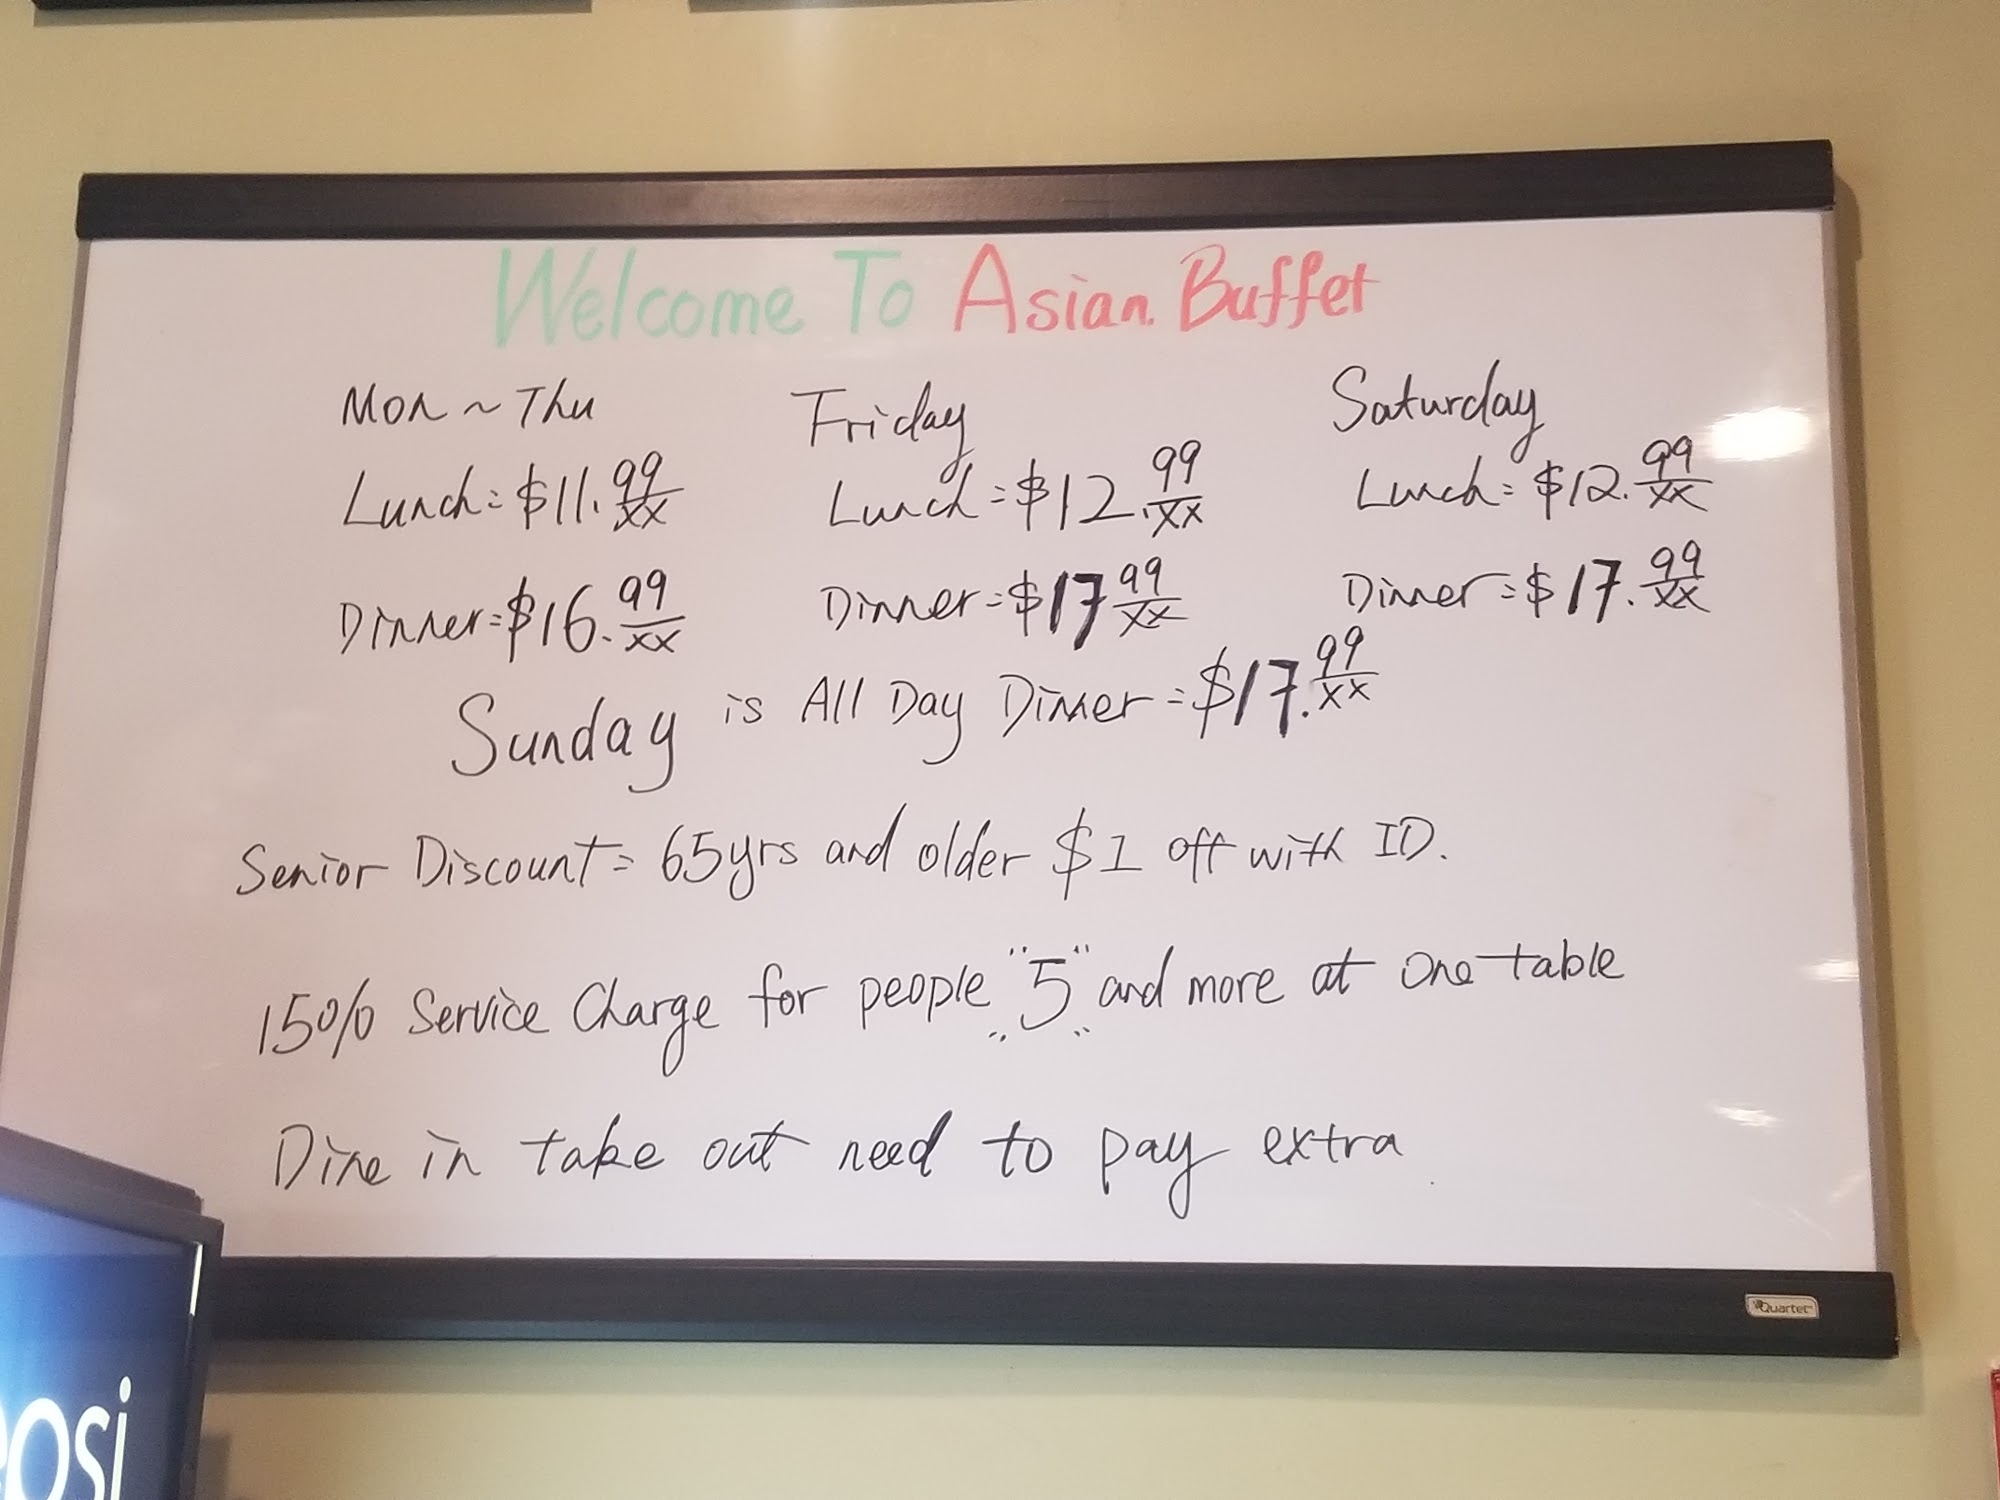 Welcome To Asian Buffet
Mon ~ Thu
Lunch = $11.99/xx
Dinner = $16.99/xx
Friday
Lunch = $12.99/xx
Dinner = $17 99/xx
Saturday
Lunch = $12.99/xx
Dinner = $17.99/xx
Sunday is All Day Dinner = $17.99/xx
Senior Discount = 65yrs and older $1 off with ID.
15% Service Charge for people "5" and more at one table
Dine in take out need to pay extra
Quartet
epsi